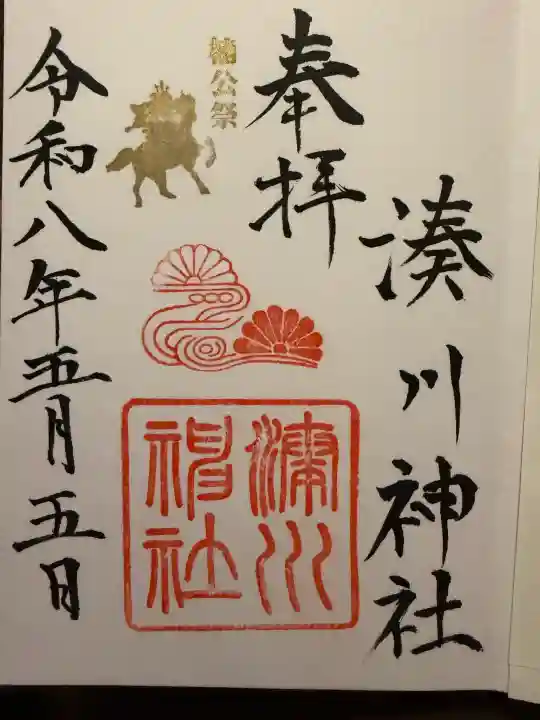 奉拝
湊川神社
楠公祭
湊川
神社
令和八年五月五日